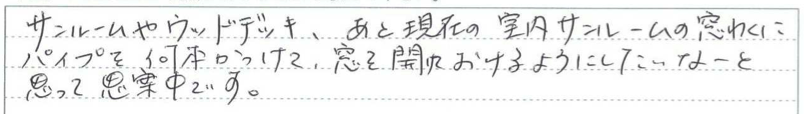 サンルームやウッドデッキ、あと現在の室内サンルームの窓わくに
パイプを何本かつけて、窓を開けおけるようにしたいなーと
思って思案中です。